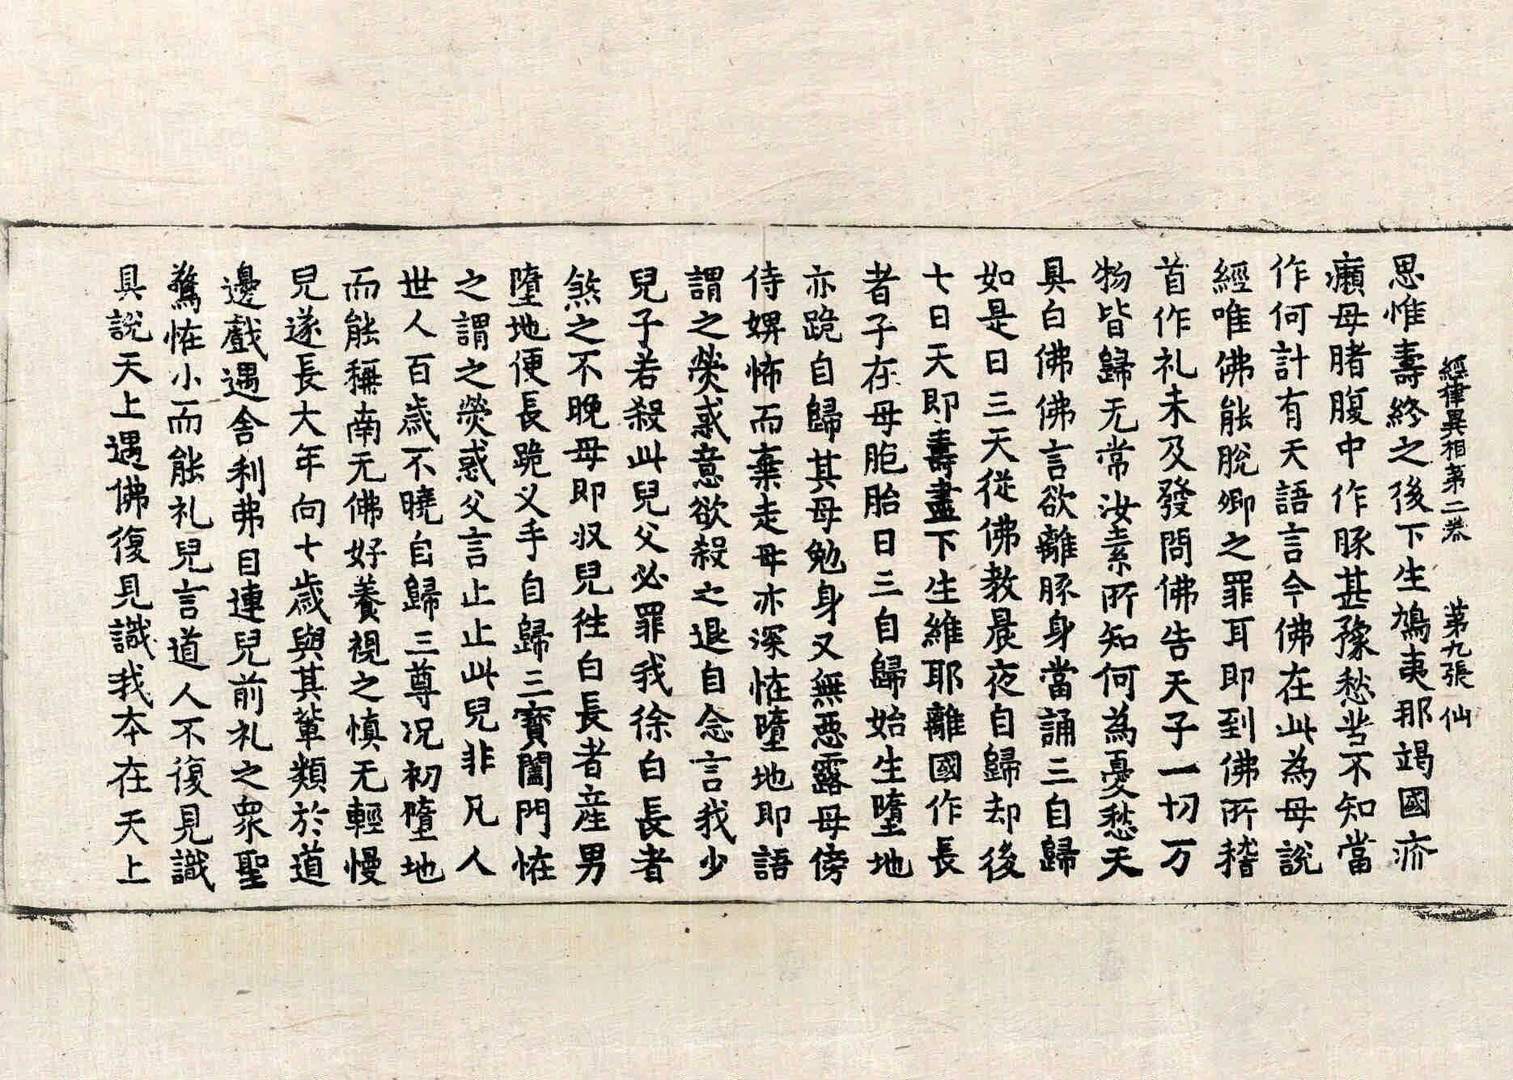 經律異相第二卷 第九張 仙
思惟壽終之後下生鳩夷那竭國疥
癩母猪腹中作豚甚豫愁苦不知當
作何計有天語言今佛在此為母說
經唯佛能脫卿之罪耳即到佛所稽
首作礼未及發問佛告天子一切万
物皆歸无常汝素所知何為憂愁天
具白佛佛言欲離豚身當誦三自歸
如是日三天從佛教晨夜自歸却後
七日天即壽盡下生維耶離國作長
者子在母胞胎日三自歸始生墮地
亦跪自歸其母勉身又無惡露母傍
侍婢怖而棄走母亦深恠墮地即語
謂之熒惑意欲殺之退自念言我少
兒子若殺此兒父必罪我徐白長者
煞之不晚母即收兒往白長者産男
墮地便長跪叉手自歸三寶闔門恠
之謂之熒惑父言止止此兒非凡人
世人百歲不曉自歸三尊况初墮地
而能稱南无佛好養視之慎无輕慢
兒遂長大年向七歲與其輩類於道
邊戲遇舍利弗目連兒前礼之衆聖
驚恠小而能礼兒言道人不復見識
具說天上遇佛復見識我本在天上